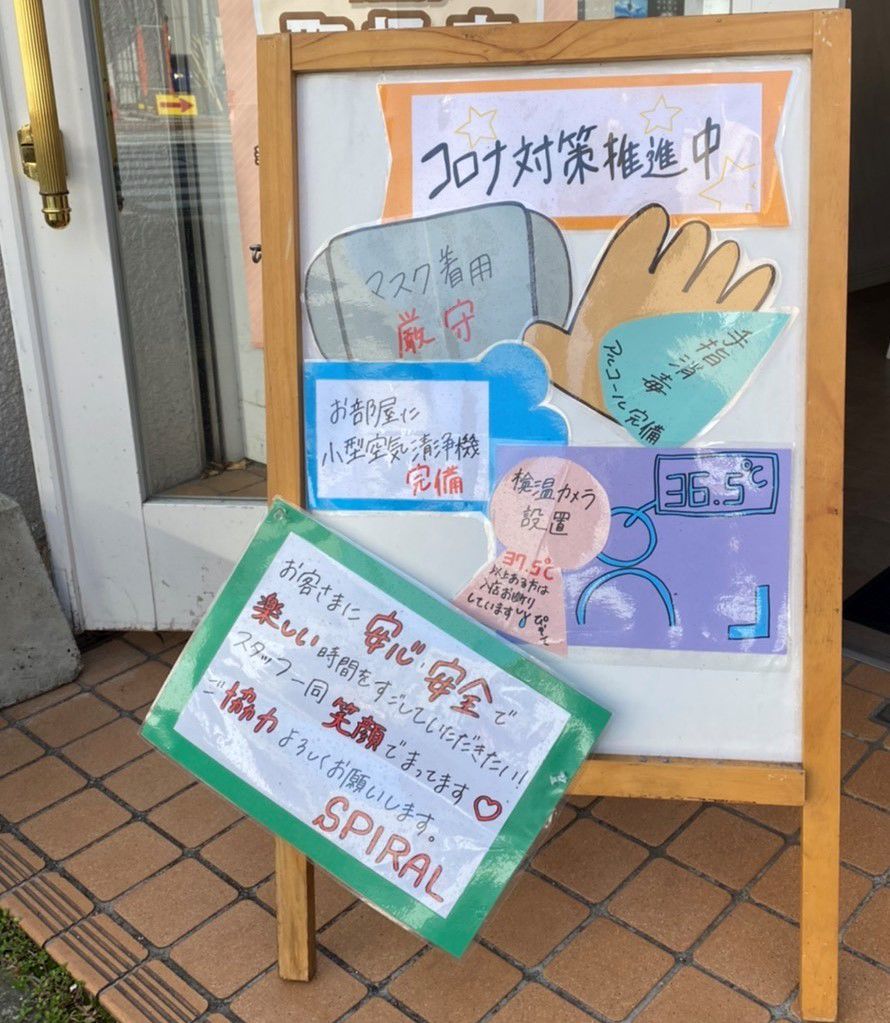 コロナ対策推進中
マスク着用
厳守
手指
消毒
アルコール完備
お部屋に
小型空気清浄機
完備
検温カメラ
設置
37.5℃
以上ある方は
入店お断り
しています
36.5℃
お客さまに安心、安全で
楽しい時間をすごしていただきたい!
スタッフ一同笑顔でまってます♡
ご協力よろしくお願いします。
SPIRAL